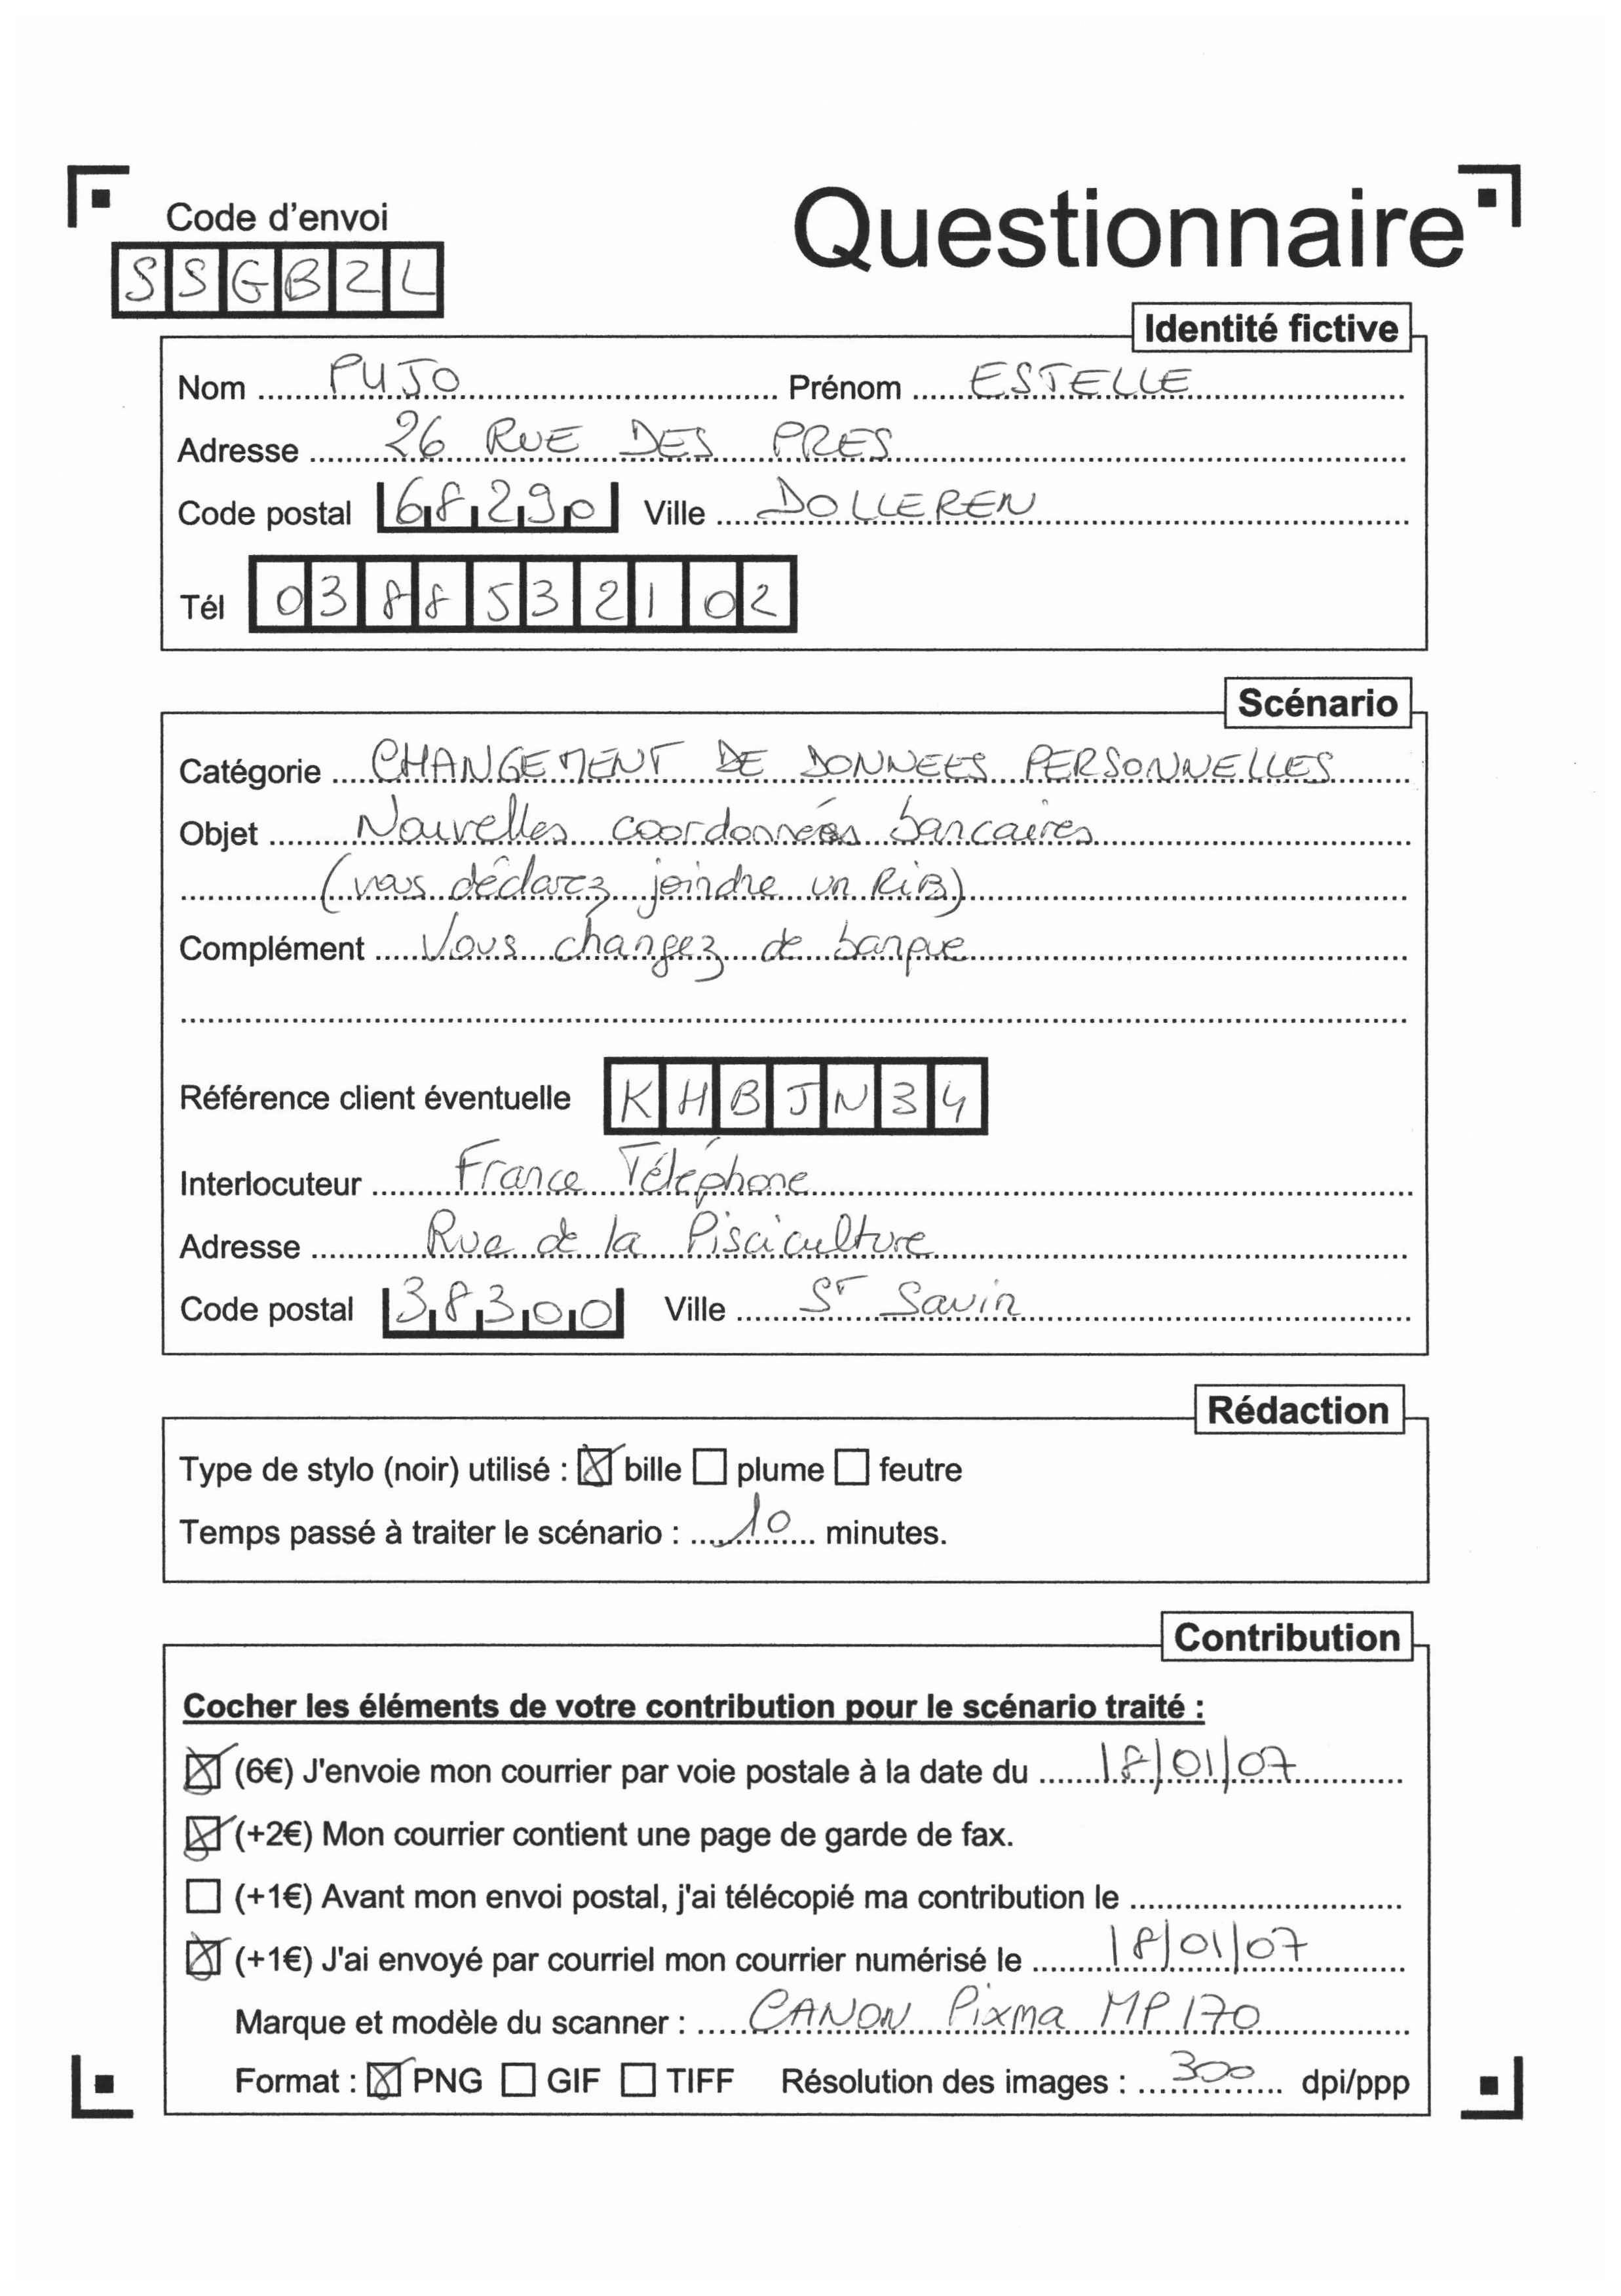 Code d'envoi
Questionnaire
SSGBZL
Identité fictive
Nom PUJO Prénom ESTELLE
Adresse 26 RUE DES PRES
Code postal 68290 Ville DOLLEREN
Tél 0388532102
Scénario
Catégorie CHANGEMENT DE DONNEES PERSONNELLES
Objet Nouvelles coordonnées bancaires
(vous déclarez joindre un RiB)
Complément Vous changez de banque
Référence client éventuelle KHBJN34
Interlocuteur France Téléphone
Adresse Rue de la Pisciculture
Code postal 38300 Ville ST Savin
Rédaction
Type de stylo (noir) utilisé : ☒ bille ☐ plume ☐ feutre
Temps passé à traiter le scénario : 10 minutes.
Contribution
Cocher les éléments de votre contribution pour le scénario traité :
☒ (6€) J'envoie mon courrier par voie postale à la date du 18/01/07
☒ (+2€) Mon courrier contient une page de garde de fax.
☐ (+1€) Avant mon envoi postal, j'ai télécopié ma contribution le
☒ (+1€) J'ai envoyé par courriel mon courrier numérisé le 18/01/07
Marque et modèle du scanner : CANON Pixma MP170
Format : ☒ PNG ☐ GIF ☐ TIFF Résolution des images : 300 dpi/ppp